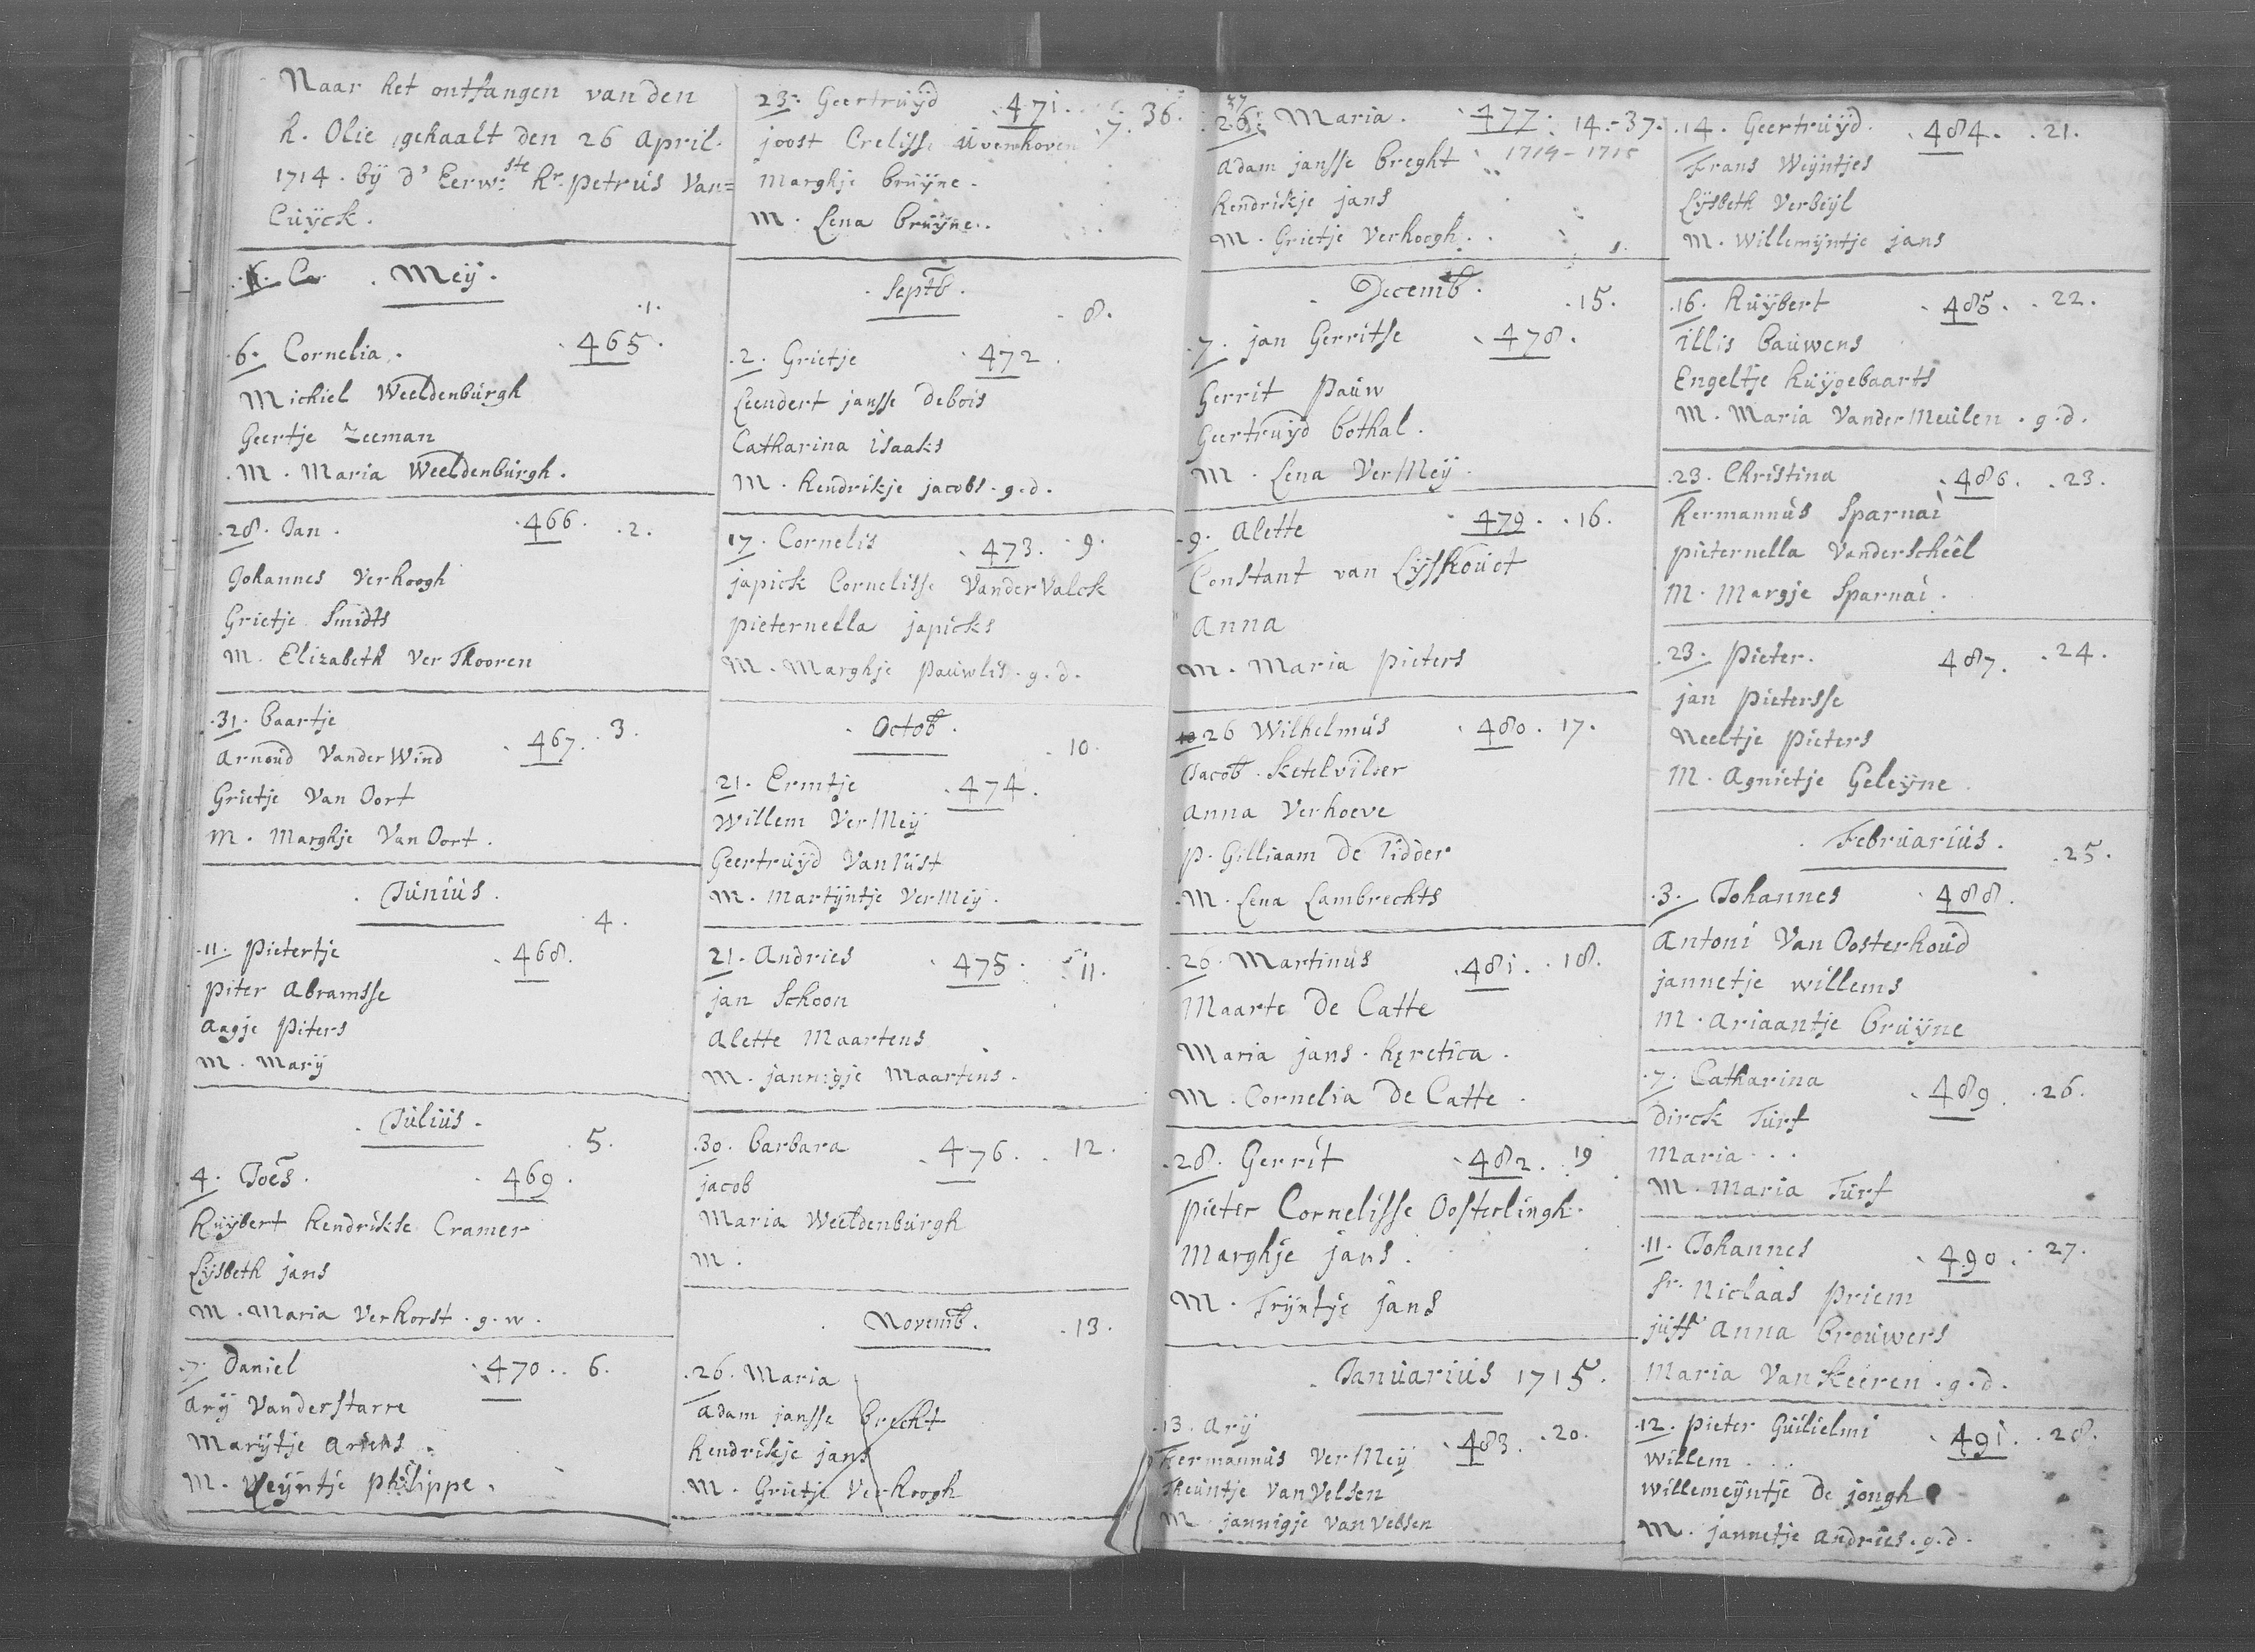 Naar het ontfangen van den
h. Olie gehaalt den 26 April.
1714. bÿ d' Eerw:ste hr. petrus Van=
Cuÿck.
Meÿ.
.1.
.6. Cornelia. .465.
Michiel Weeldenburgh
Geertje Zeeman
.M. Maria Weeldenburgh.
.28. Jan. .466. .2.
Johannes Verhoogh
Grietje Smidts
M. Elizabeth Ver Thooren
.31. baartje .467. .3.
Arnoud VanderWind
Grietje Van Oort
M. Marghje Van Oort.
.Junius.
4.
.11. Pietertje .468.
piter Abramsse
Aagje Piters
M. Marÿ
.Julius.
.5.
4. Joes. .469.
huÿbert hendrikse Cramer
Lÿsbeth jans
M. Maria Verhorst. g. w.
.7. Daniel .470. . 6.
Arÿ Vanderstarre
Marÿtje Ariens.
M. Weÿntje philippe.
23. Geertruÿd .471. .7. 36.
joost Crelisse uvenhoven
Marghje bruÿne.
M. Lena bruÿne.
.Septb.
8.
.2. Grietje .472.
Leendert jansse Debois
Catharina isaaks
M. hendrikje jacobs. g. d.
17. Cornelis .473. .9.
japick Cornelisse VanderValck
pieternella japicks
M. Marghje pauwlis. g. d.
.Octob.
10.
21. Ermtje .474.
Willem VerMeÿ
Geertruÿd VanRust
M. Martÿntje VerMeÿ.
21. Andries .475. .11.
jan Schoon
Alette Maartens
M. jannigje Maartens.
.30. barbara .476. . 12.
jacob
Maria Weeldenburgh
M.
.Novemb.
.13.
.26. Maria
Adam jansse brecht
hendrikje jans
M. Grietje Verhoogh
37
26. Maria. .477. 14.-37.
Adam jansse breght 1714-1715
hendrikje jans
M. Grietje Verhoogh.
.Decemb.
.15.
.7. jan Gerritse .478.
Gerrit pauw
Geertruÿd bothal.
M. Lena VerMeÿ.
.9. Alette .479. .16.
Constant van Lÿshouct
Anna
M. Maria pieters
26 Wilhelmus .480. 17.
Jacob. Ketelvilser
Anna Verhoeve
p. Gilliaam De Ridder
M. Lena Lambrechts
.26. Martinus .481. .18.
Maarte De Catte
Maria jans. hęretica.
M. Cornelia De Catte.
.28. Gerrit .482. .19
pieter Cornelisse Oosterlingh.
Marghje jans.
M. Trÿntje jans
.Januarius 1715.
.13. Arÿ .483. .20.
Hermannus VerMeÿ
Theuntje VanVelsen
M. jannigje VanVelsen
.14. Geertruÿd. .484. .21.
Frans Weÿntjes
Lÿsbeth Verbeÿl
M. Willemÿntje jans
.16. huÿbert .485. .22.
illis bauwens
Engeltje huÿgebaarts
M. Maria VanderMeulen. g. d.
.23. Christina .486. .23.
hermannus Sparnai
pieternella Vanderscheel
M. Margje Sparnai.
.23. pieter. 487. .24.
jan pietersse
Neeltje pieters
M. Agnietje Geleÿne.
.Februarius.
.25.
.3. Johannes .488.
Antoni Van Oosterhoud
jannetje willems
M. Ariaantje bruÿne
.7. Catharina .489. .26.
Dirck Turf
Maria . . .
M. Maria Turf
.11. Johannes .490. .27.
Sr. Niclaas priem
juffr Anna brouwers
Maria VanKeeren. g. d.
.12. pieter Guilielmi .491. .28.
Willem . . .
willemeÿntje De jongh
M. jannetje Andries. g. d.